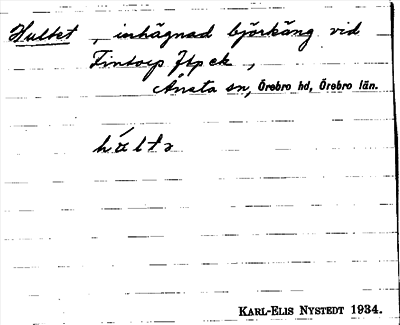 Hultet, inhägnad björkäng vid
Fintorp
Ånsta sn, Örebro hd, Örebro län.
KARL-ELIS NYSTEDT 1934.